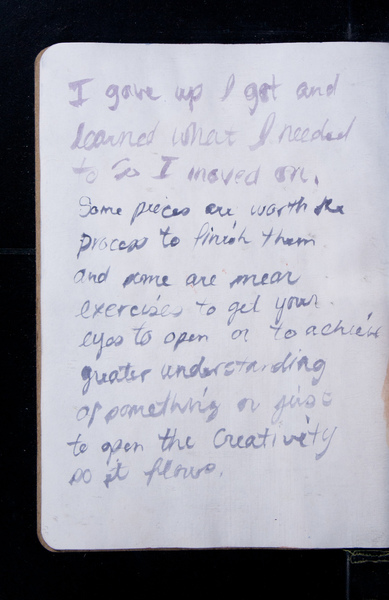 I gave up I got and
learned what I needed
to So I moved on.
Some pieces are worth the
process to finish them
and some are mear
exercises to get your
eyes to open or to achieve
greater understanding
of something or just
to open the Creativity
so it flows.